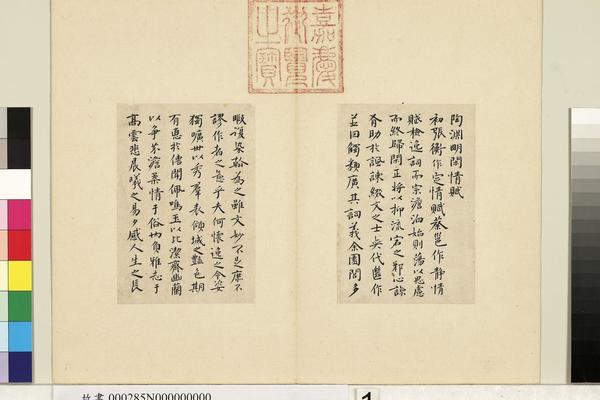 嘉慶
御覽
之寶
陶淵明閑情賦
初張衡作定情賦蔡邕作靜情
賦檢逸詞而宗澹泊始則蕩以思慮
而終歸閑正將以抑流宕之邪心諒
有助於諷諫綴文之士奕代繼作
並因觸類廣其詞義余園閭多
暇復染翰為之雖文妙不足庶不
謬作者之意乎夫何懷逸之令姿
獨曠世以秀羣表傾城之豔色期
有德於傳聞佩鳴玉以比潔齊幽蘭
以爭芬澹柔情于俗內負雅志于
高雲悲晨曦之易夕感人生之長
000285N000000000
1